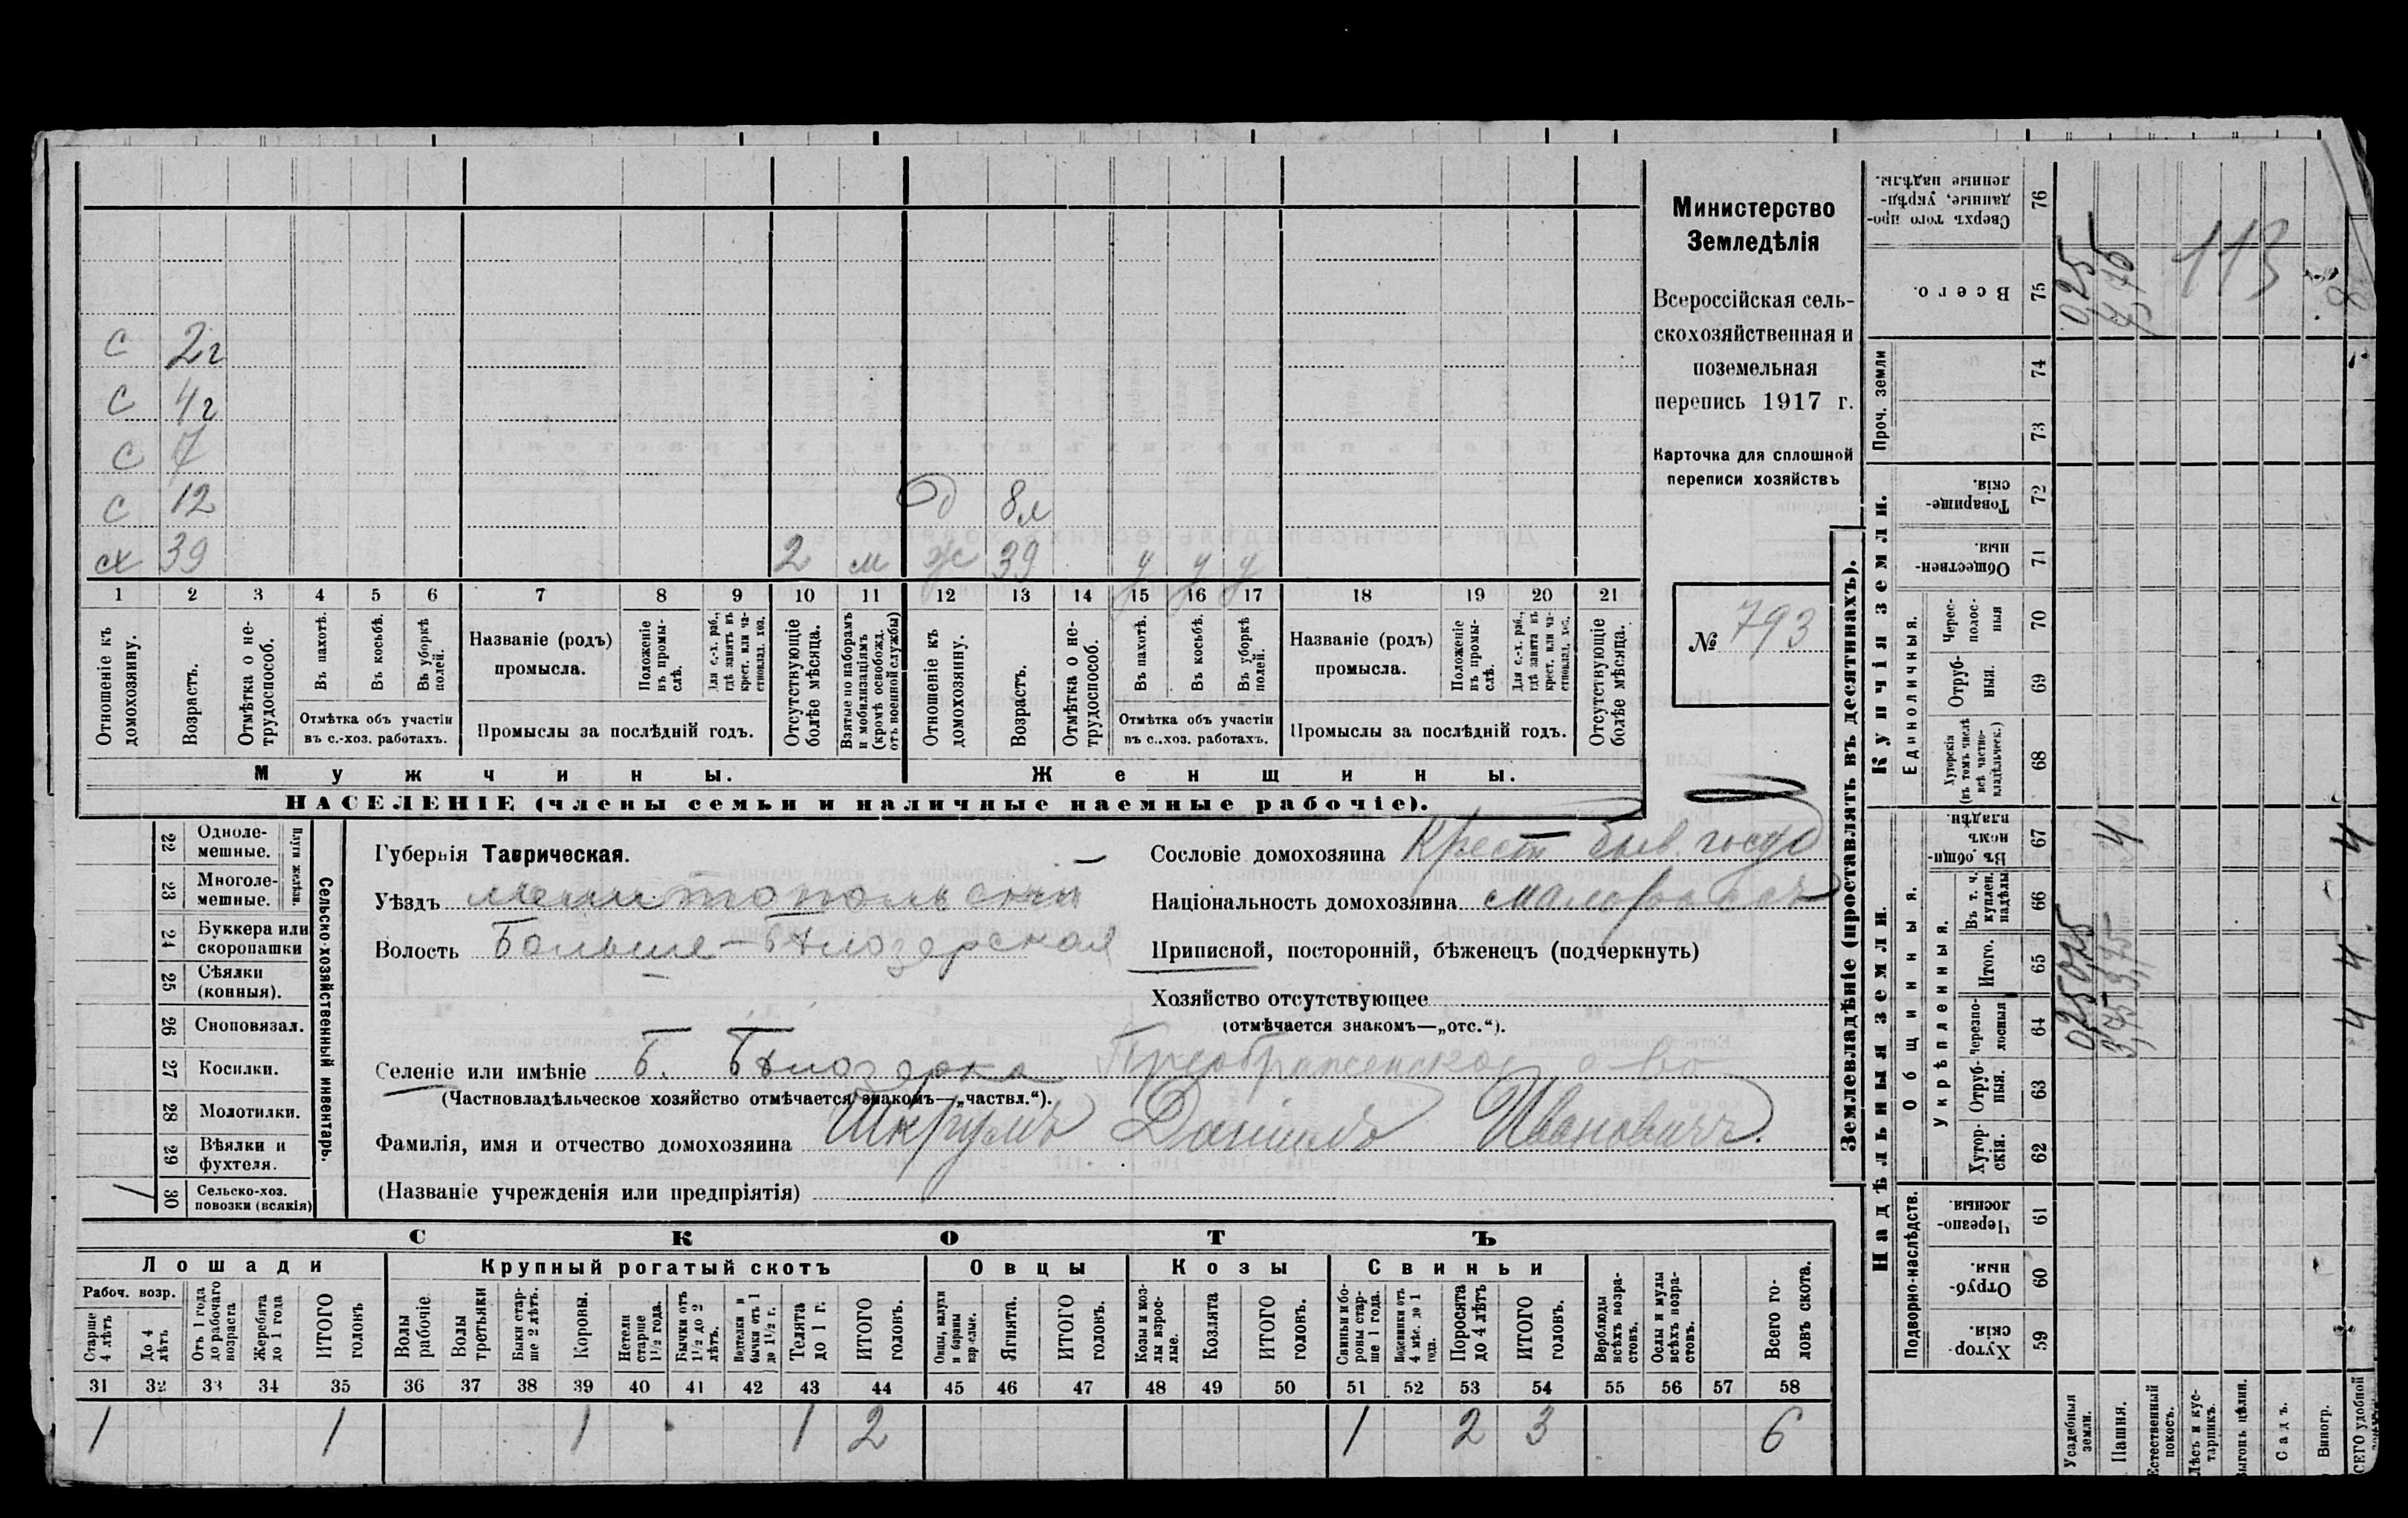 с 2г
с 4г
с 7
с 12 д 8л
сх 39 2 м ж 39 у у у
1 2 3 4 5 6 7 8 9 10 11 12 13 14 15 16 17 18 19 20 21
Отношеніе къ домохозяину.
Возрастъ.
Отмѣтка о нетрудоспособ.
Въ пахотѣ.
Въ косьбѣ.
Въ уборкѣ полей.
Отмѣтка объ участіи
въ с.-хоз. работахъ.
Названіе (родъ)
промысла.
Положеніе въ промыслѣ.
Для с.-х. раб., гдѣ занятъ въ крест. или частновлад. хоз.
Промыслы за послѣдній годъ.
Отсутствующіе болѣе мѣсяца.
Взятые по наборамъ и мобилизаціямъ (кромѣ освобожд. отъ военной службы)
Отношеніе къ домохозяину.
Возрастъ.
Отмѣтка о нетрудоспособ.
Въ пахотѣ.
Въ косьбѣ.
Въ уборкѣ полей.
Отмѣтка объ участіи
въ с.-хоз. работахъ.
Названіе (родъ)
промысла.
Положеніе въ промыслѣ.
Для с.-х. раб., гдѣ занята въ крест. или частновлад. хоз.
Промыслы за послѣдній годъ.
Отсутствующіе болѣе мѣсяца.
Мужчины. Женщины.
НАСЕЛЕНІЕ (члены семьи и наличные наемные рабочіе).
Министерство
Земледѣлія
Всероссійская сель-
скохозяйственная и
поземельная
перепись 1917 г.
Карточка для сплошной
переписи хозяйствъ
№ 793
22 Одноле-
мешные.
23 Многоле-
мешные.
Плуги желѣзн.
24 Буккера или
скоропашки
25 Сѣялки
(конныя).
26 Сноповязал.
27 Косилки.
28 Молотилки.
29 Вѣялки и
фухтеля.
30 Сельско-хоз.
повозки (всякія)
1
Сельско-хозяйственный инвентарь.
Губернія Таврическая.
Уѣздъ Мелитопольскій
Волость Больше-Бѣлозерская
Сословіе домохозяина Крест быв. госуд
Національность домохозяина малороссъ
Приписной, посторонній, бѣженецъ (подчеркнуть)
Хозяйство отсутствующее
(отмѣчается знакомъ—„отс.“).
Селеніе или имѣніе Б. Бѣлозерка Преображенское о-во
(Частновладѣльческое хозяйство отмѣчается знакомъ—„частвл.“).
Фамилія, имя и отчество домохозяина Шкрумъ Даніилъ Ивановичъ.
(Названіе учрежденія или предпріятія)
СКОТЪ
Лошади Крупный рогатый скотъ Овцы Козы Свиньи
Рабоч. возр.
Старше 4 лѣтъ
До 4 лѣтъ
Отъ 1 года до рабочаго возраста
Жеребята до 1 года
ИТОГО головъ
Волы рабочіе
Волы третьяки
Быки старше 2 лѣтъ.
Коровы.
Нетели старше 1½ года.
Бычки отъ 1½ до 2 лѣтъ.
Подтелки и бычки отъ 1 до 1½ г.
Телята до 1 г.
ИТОГО головъ.
Овцы, валухи и бараны взрослые.
Ягнята.
ИТОГО головъ.
Козы и козлы взрослые.
Козлята
ИТОГО головъ.
Свиньи и боровы старше 1 года.
Подсвинки отъ 4 мѣс. до 1 года.
Поросята до 4 лѣтъ
ИТОГО головъ.
Верблюды всѣхъ возрастовъ.
Ослы и мулы всѣхъ возрастовъ.
Всего головъ скота.
31 32 33 34 35 36 37 38 39 40 41 42 43 44 45 46 47 48 49 50 51 52 53 54 55 56 57 58
1 1 1 1 2 1 2 3 6
Землевладѣніе (проставлять въ десятинахъ).
Купчія земли.
Надѣльныя земли.
Сверхъ того проданные, укрѣпленные надѣлы. 76
Всего. 75
Проч. земли
74
73
Товарищескія. 72
Общественныя. 71
Единоличныя.
Чересполосныя 70
Отрубныя. 69
Хуторскія (въ томъ числѣ всѣ частновладѣльческ.) 68
Общинныя.
Въ общинномъ владѣн. 67
Укрѣпленныя.
Въ т. ч. куплен. надѣлы 66
Итого. 65
Черезполосныя 64
Отрубныя. 63
Хуторскія. 62
Подворно-наслѣдств.
Черезполосныя 61
Отрубныя. 60
Хуторскія 59
Усадебныя земли.
Пашня.
Естественный покосъ.
Лѣсъ и кустарникъ.
Выгонъ цѣлин.
Садъ.
Виногр.
ВСЕГО удобной
0,25
113
4
0,25 0,25
3,75 3,75
4 4 4